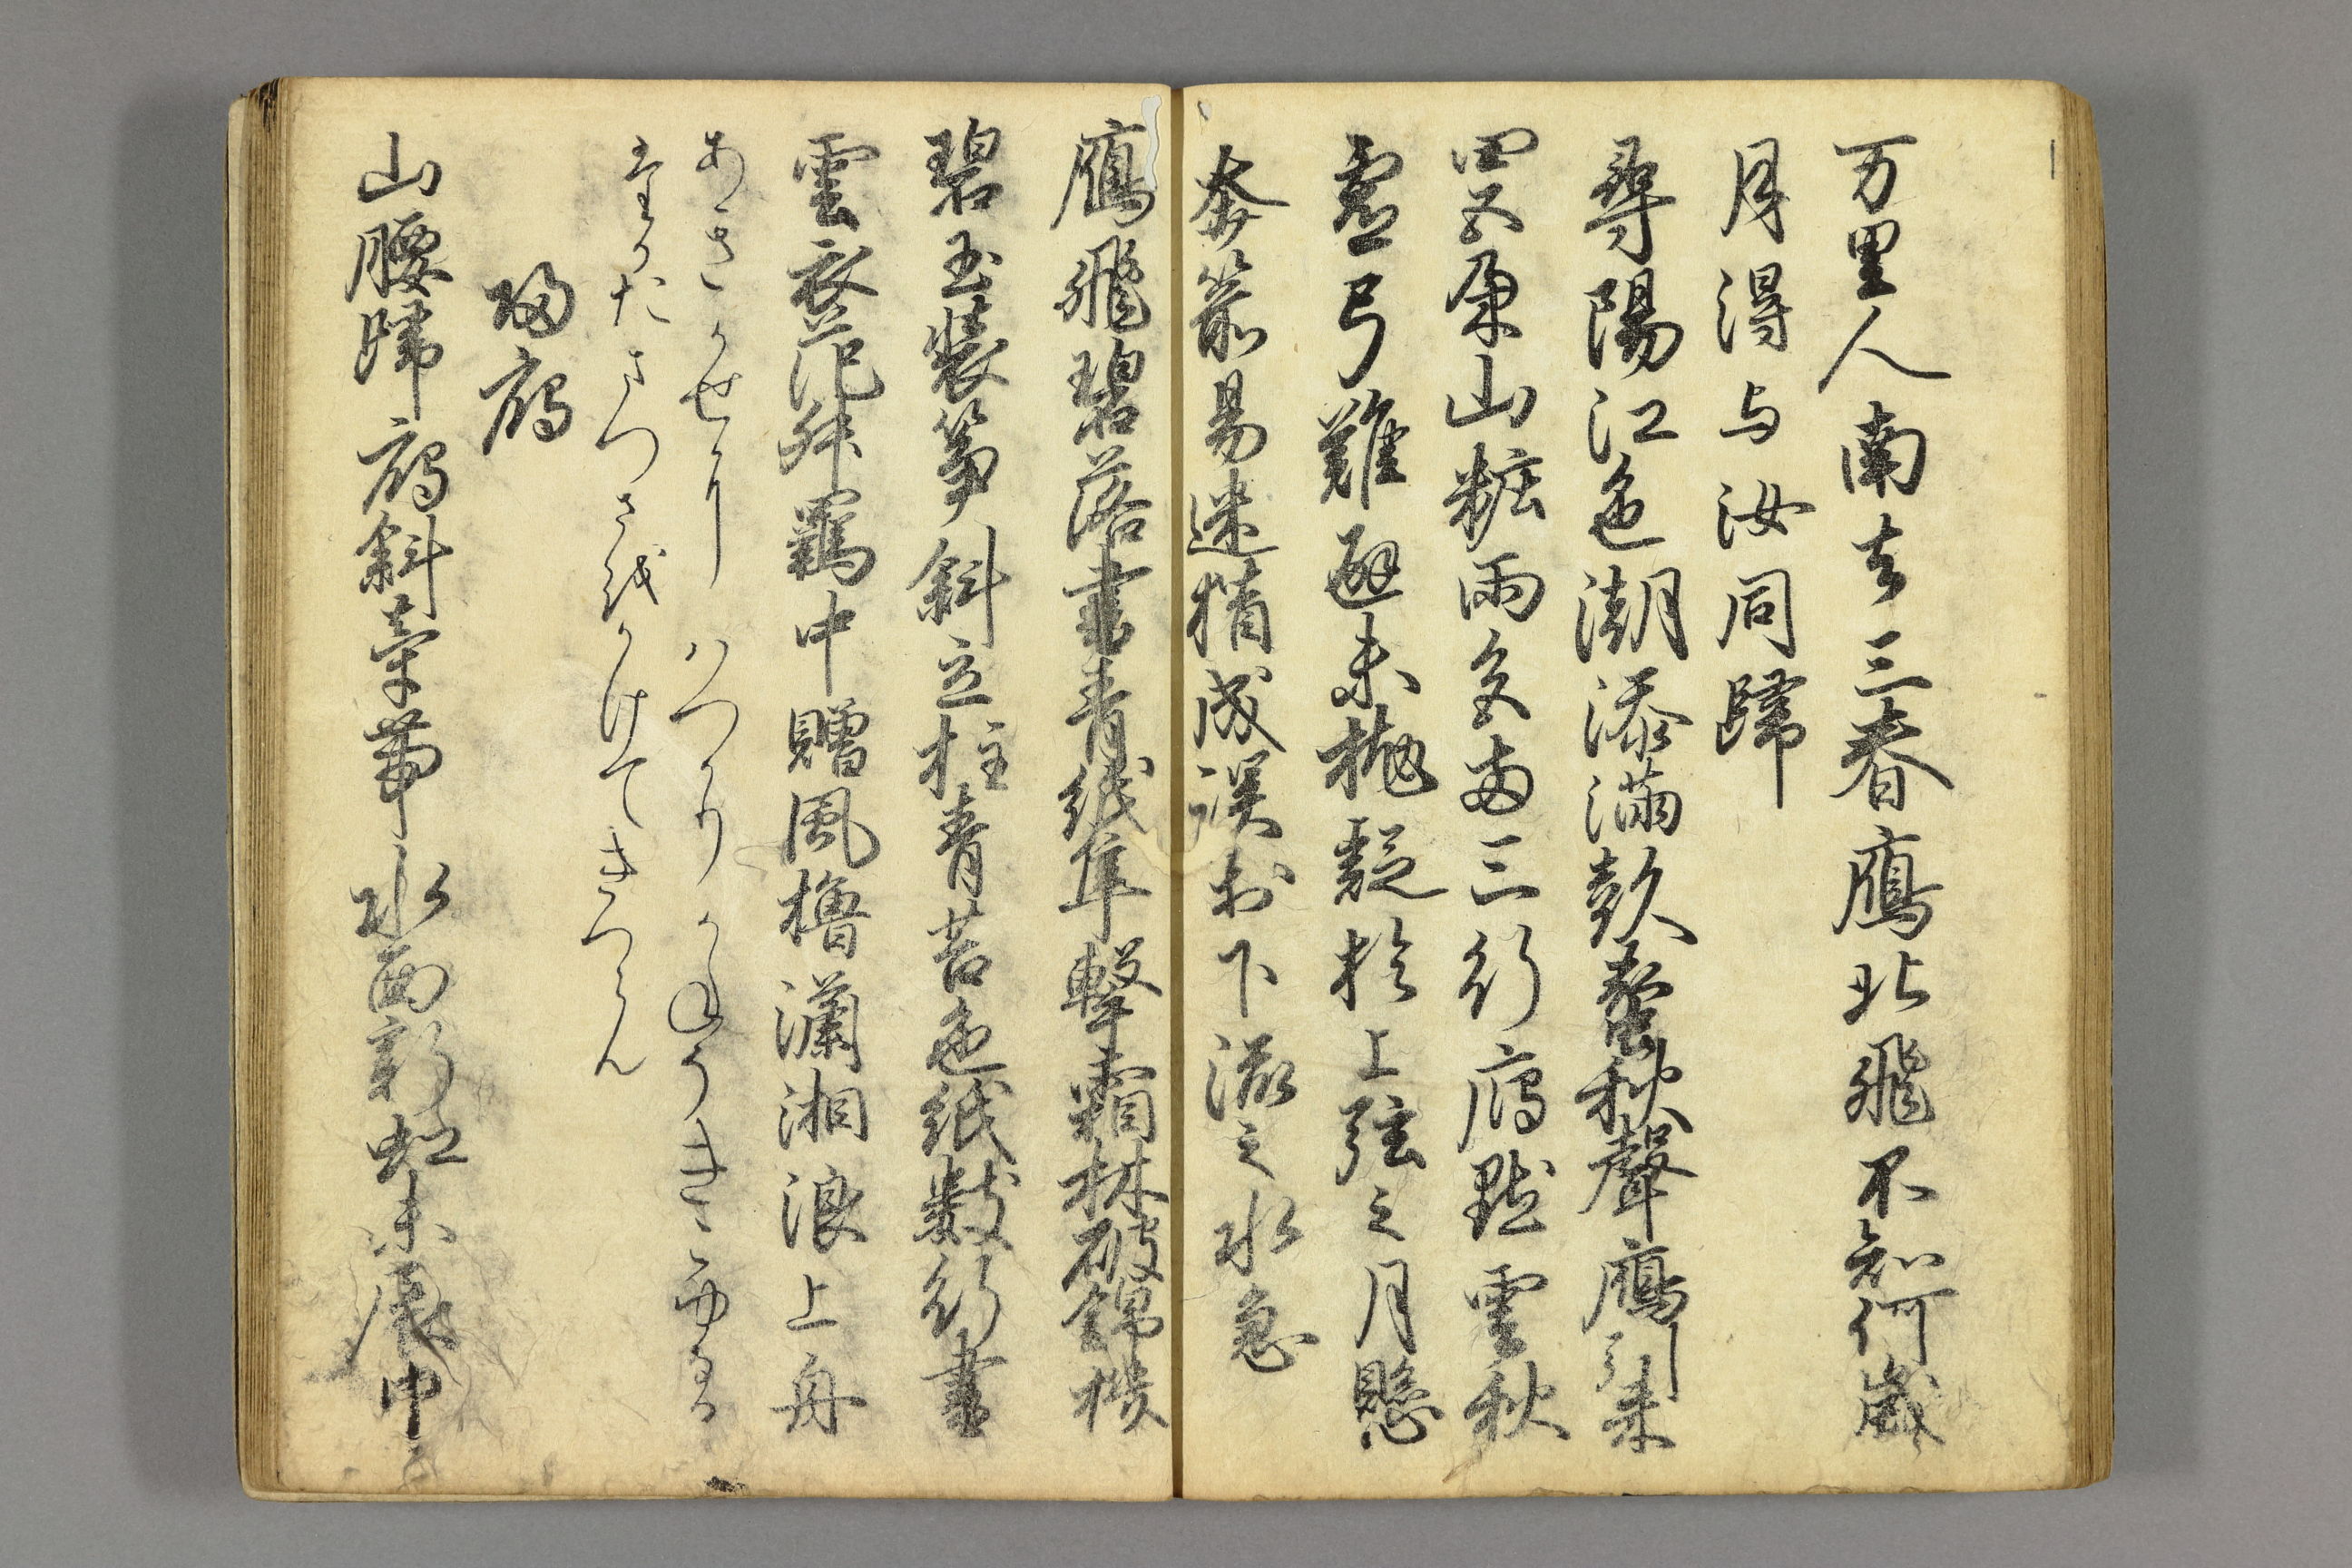 万里人南去三春鴈北飛不知何歳
月得与汝同歸
尋陽江色潮添滿彭蠡秋聲鴈引来
四五朶山粧雨色両三行鴈點雲秋
虚弓難避未抛疑於上弦之月懸
奔箭易迷猶成誤於下流之水急
鴈飛碧落書青紙隼撃霜林破錦機
碧玉装箏斜立柱青苔色紙數行書
雲衣范叔羈中贈風櫓瀟湘浪上舟
あきかせにはつかりかねそきこゆなる
たかたまつさをかけてきつらん
歸鴈
山腰歸鴈斜牽帯水面新虹未展巾